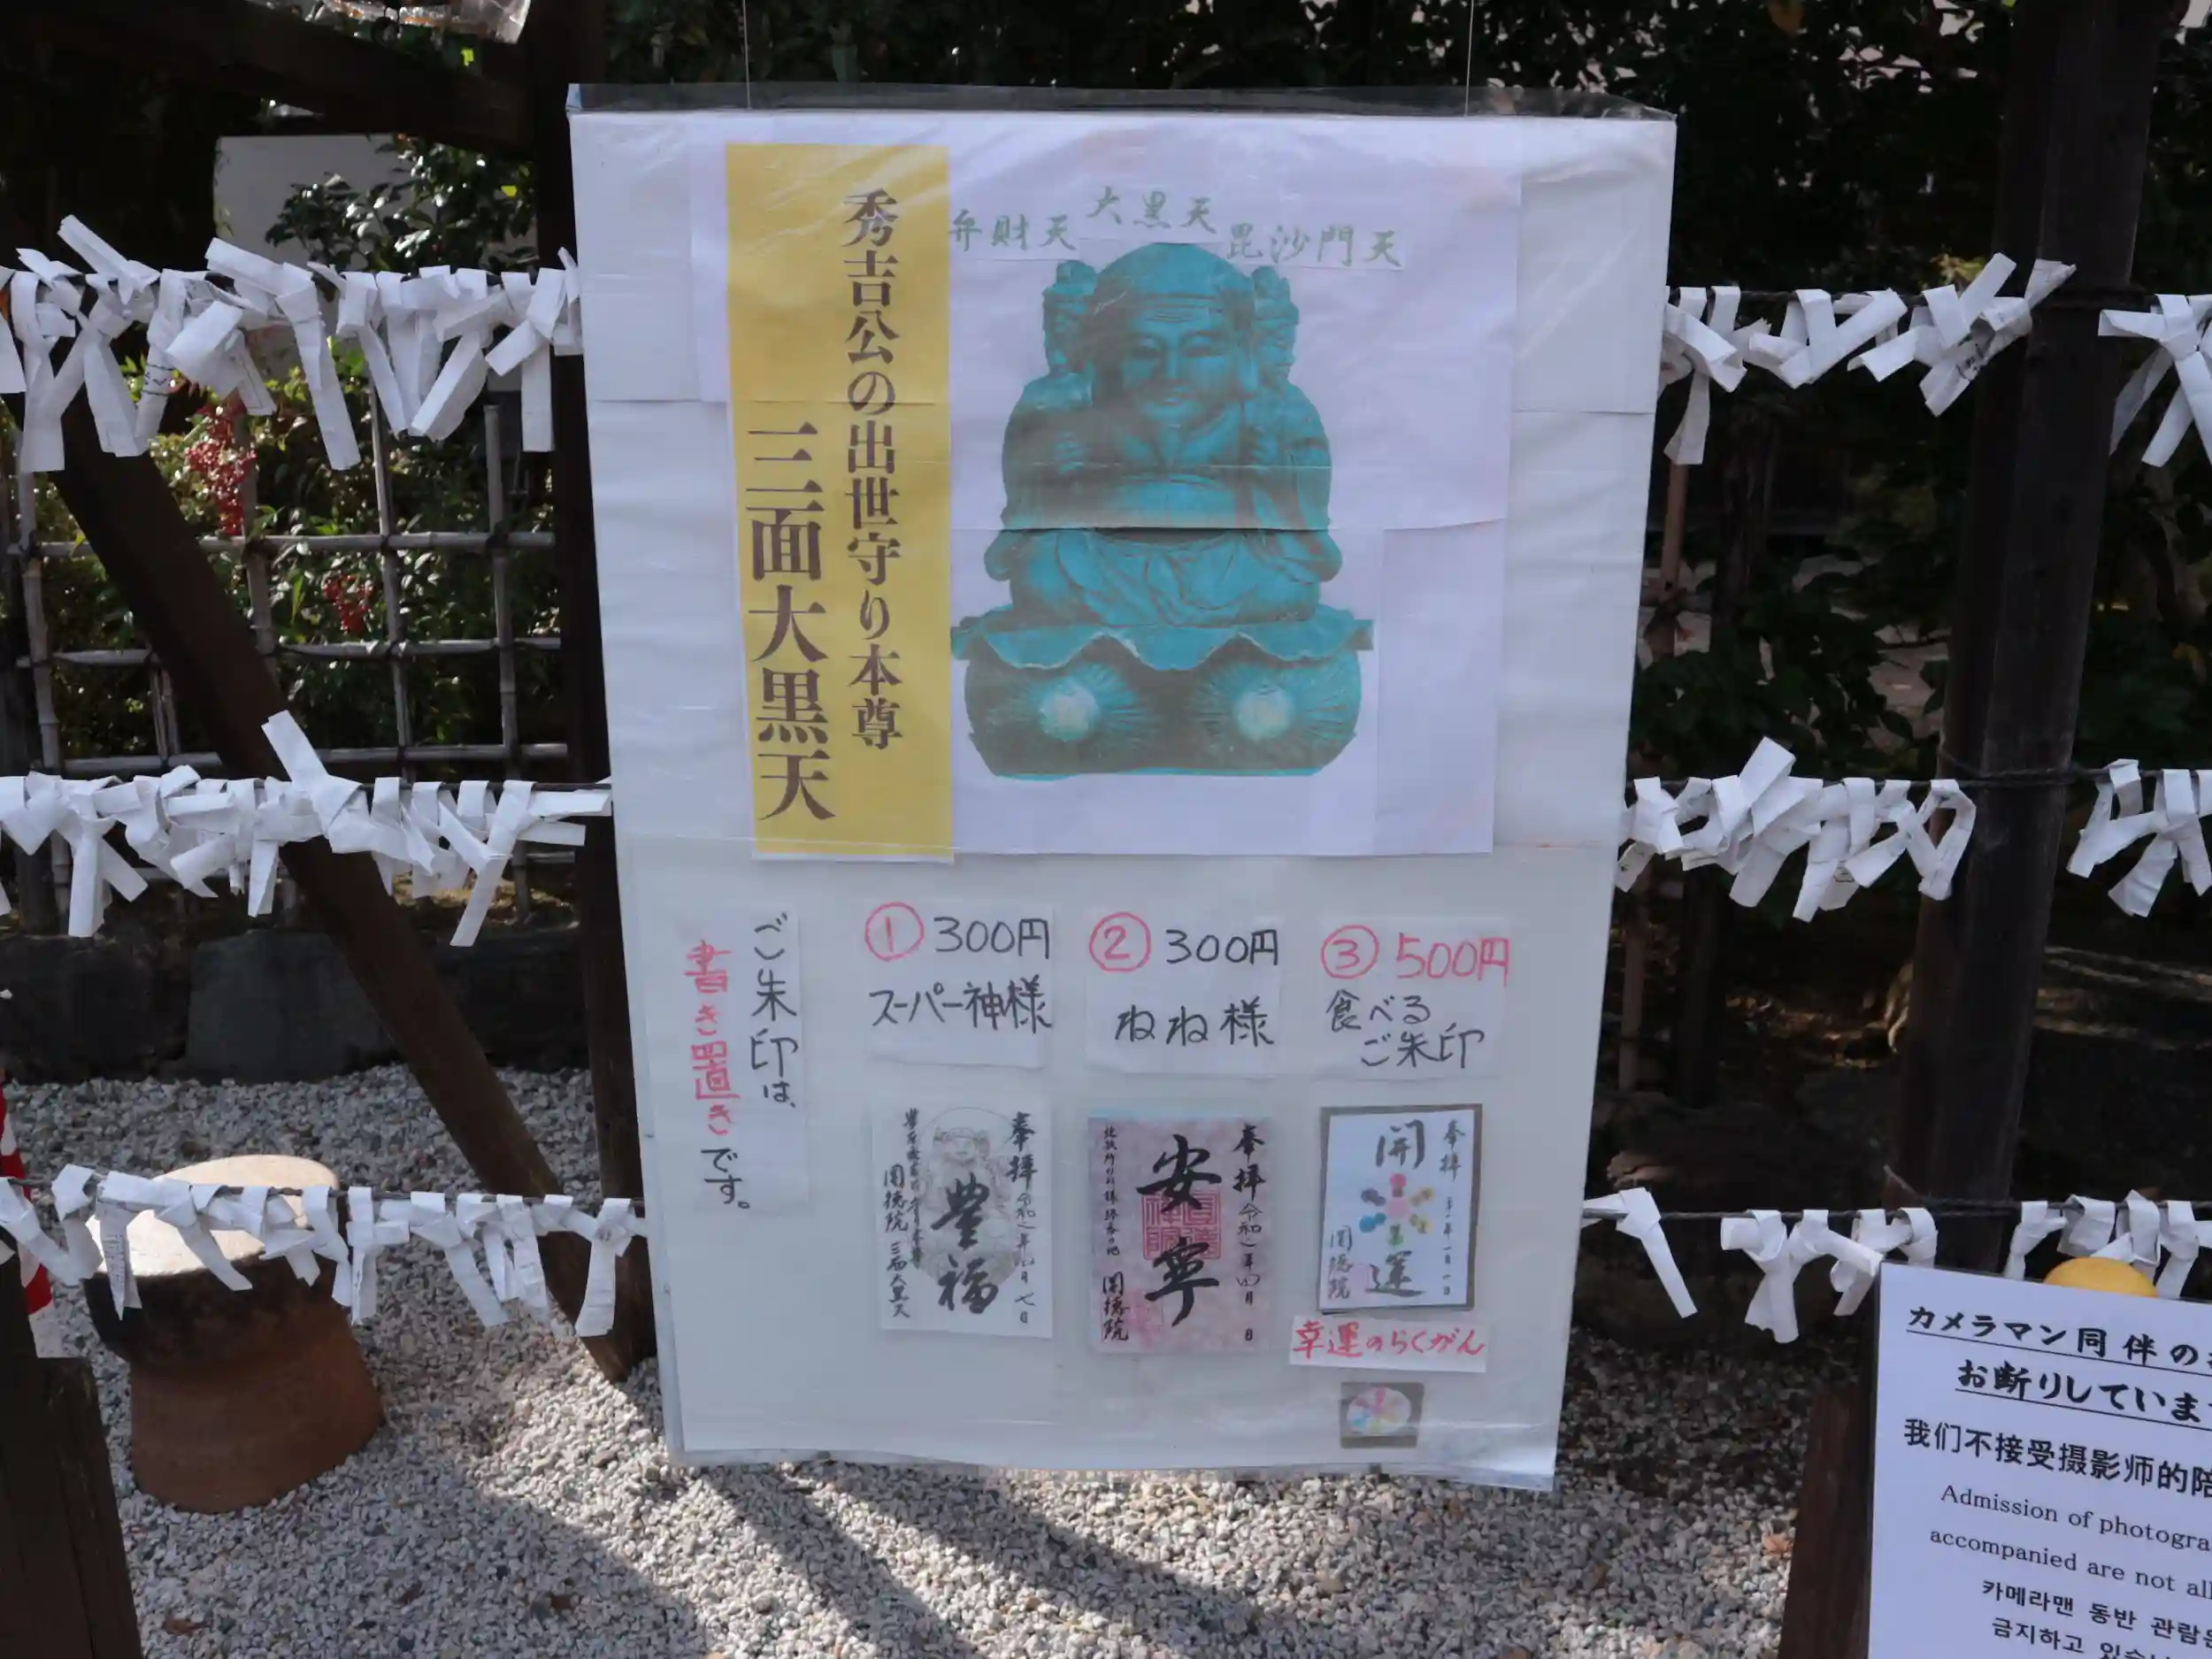 秀吉公の出世守り本尊
三面大黒天
弁財天
大黒天
毘沙門天
ご朱印は、
書き置きです。
① 300円
スーパー神様
② 300円
ねね様
③ 500円
食べる
ご朱印
奉拝
豊福
圓徳院 三面大黒天
奉拝
安寧
圓徳院
奉拝
開運
圓徳院
幸運のらくがん
カメラマン同伴の
お断りしていま
我们不接受摄影师的陪
Admission of photogra
accompanied are not all
카메라맨 동반 관람은
금지하고 있습